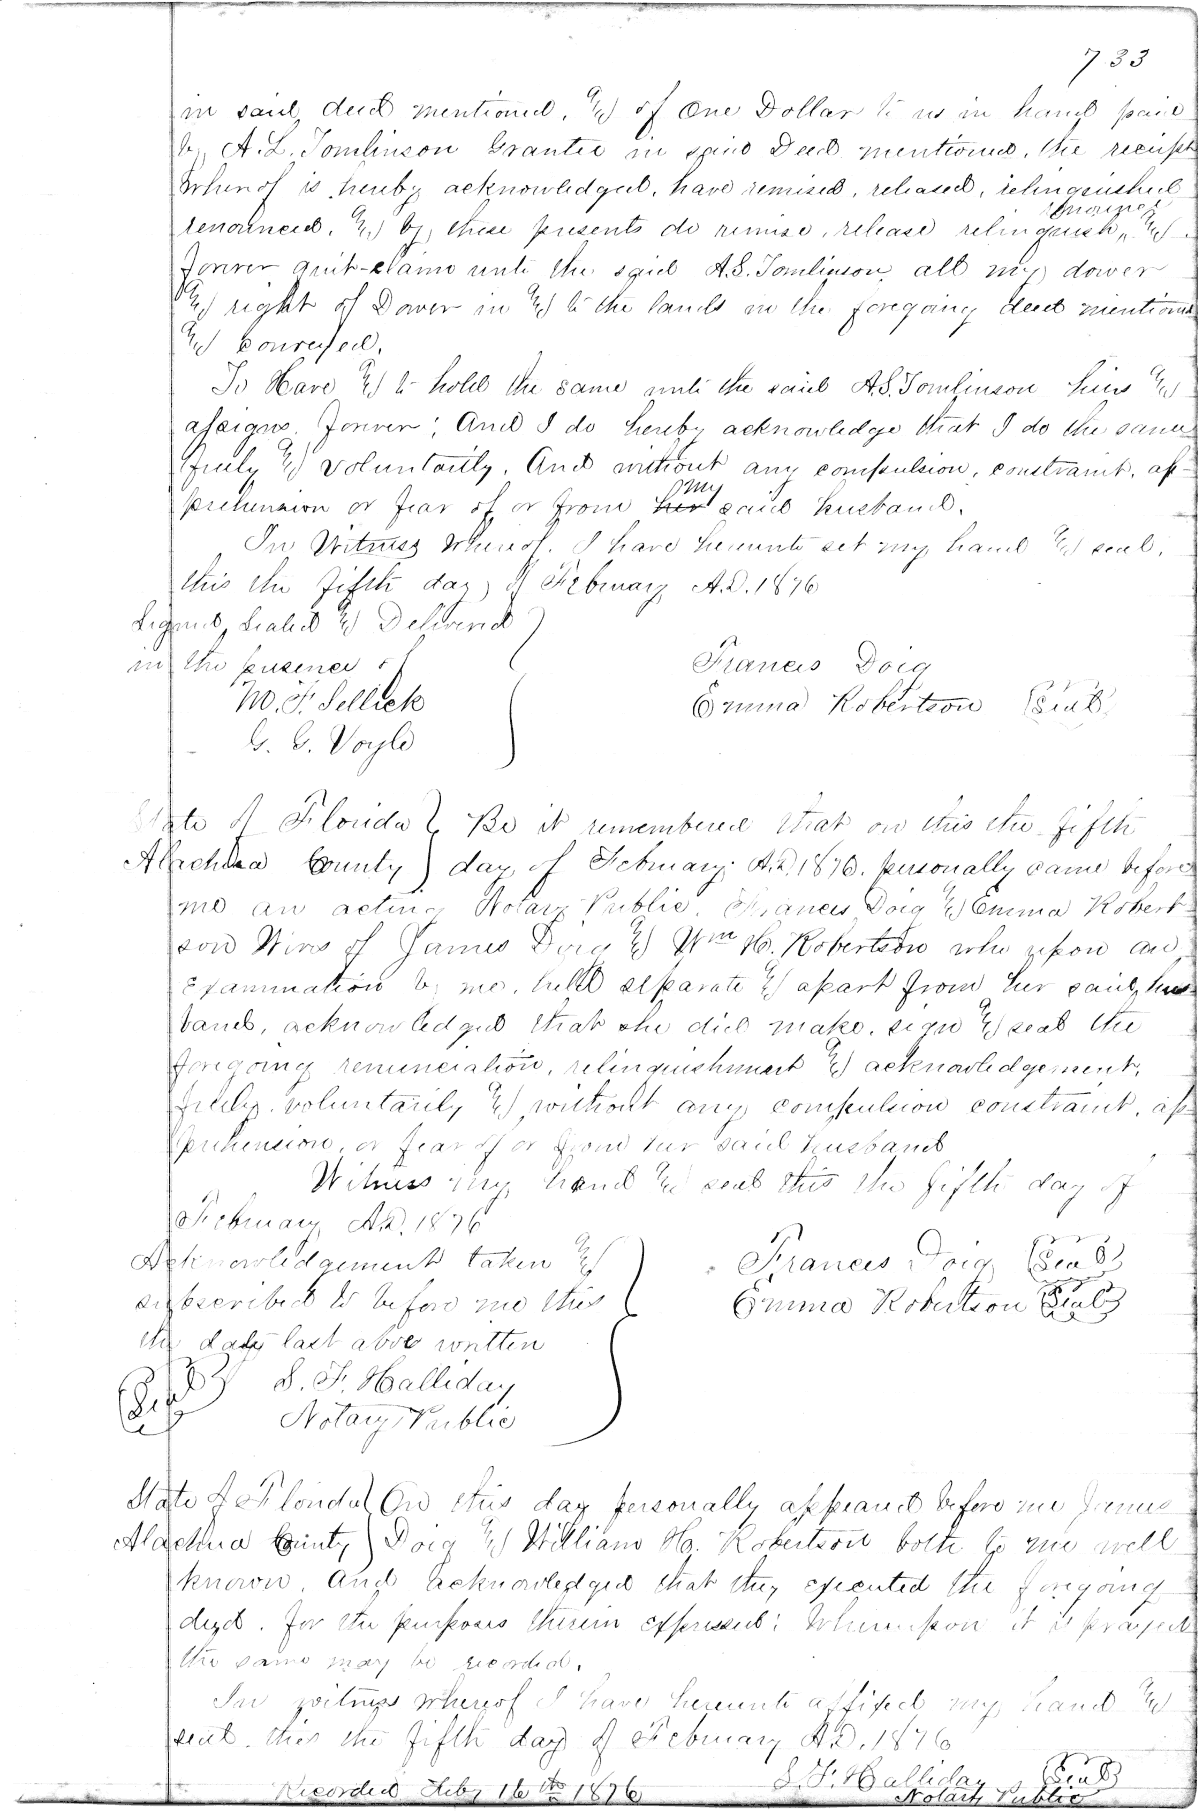 733
in said deed mentioned, & of One Dollar to us in hand paid
by A.L. Tomlinson Grantee in said Deed mentioned, the receipt
Whereof is hereby acknowledged, have remised, released, relinquished
renounced, & by these presents do remise, release relinquish, renounce &
forever quit-claim unto the said A.S. Tomlinson all my dower
& right of Dower in & to the lands in the foregoing deed mentioned
& conveyed.
To Have & to hold the same unto the said A.S. Tomlinson heirs &
assigns, forever; And I do hereby acknowledge that I do the same
freely & voluntarily. And without any compulsion, constraint, ap-
prehension or fear of or from her my said husband.
In Witness Whereof, I have hereunto set my hand & seal,
this the fifth day of February A.D. 1876
Signed, Sealed & Delivered
in the presence of
Francis Doig
W. F. Sellick
Emma Robertson (Seal)
G. G. Voyle
State of Florida } Be it remembered that on this the fifth
Alachua County } day of February A.D. 1876. personally came before
me an acting Notary Public, Frances Doig & Emma Robert-
son Wives of James Doig & Wm H. Robertson who upon an
examination by me, held separate & apart from her said hus-
band, acknowledged that she did make, sign & seal the
foregoing renunciation, relinquishment & acknowledgement,
freely, voluntarily & without any compulsion constraint, ap-
prehension, or fear of or from her said husband
Witness my hand & seal this the fifth day of
February A.D. 1876
Acknowledgement taken &
Frances Doig (Seal)
subscribed to before me this
Emma Robertson (Seal)
the day last above written
(Seal) S. F. Halliday
Notary Public
State of Florida } On this day personally appeared before me James
Alachua County } Doig & William H. Robertson both to me well
known, And acknowledged that they executed the foregoing
deed, for the purposes therein expressed; Whereupon it is prayed
the same may be recorded.
In witness whereof I have hereunto affixed my hand &
seal this the fifth day of February A.D. 1876
S. F. Halliday (Seal)
Notary Public
Recorded Feby 16th 1876